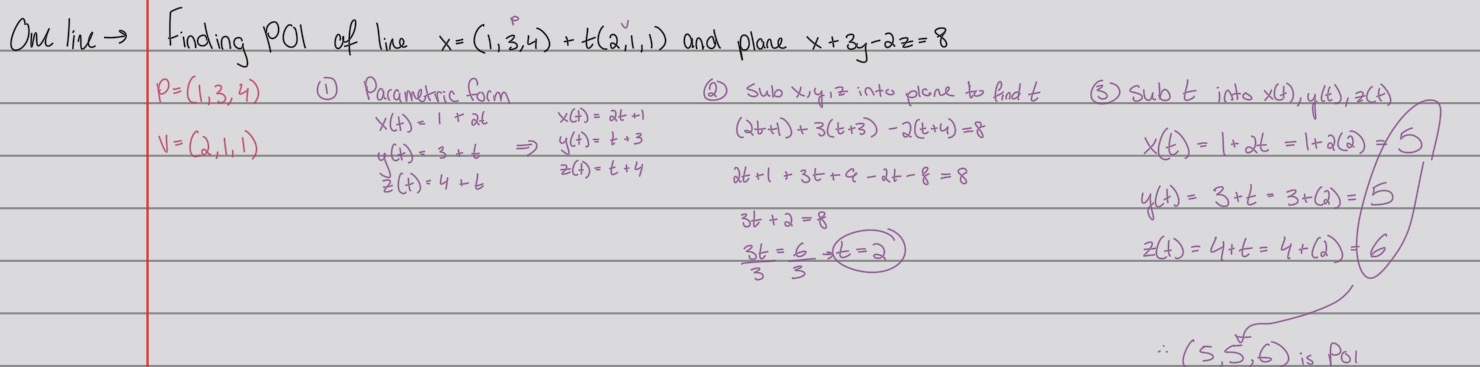 One line → Finding POI of line x = (1,3,4) + t(2,1,1) and plane x + 3y - 2z = 8
P V
P = (1,3,4)
V = (2,1,1)
① Parametric form
x(t) = 1 + 2t
y(t) = 3 + t
z(t) = 4 + t
⇒
x(t) = 2t +1
y(t) = t + 3
z(t) = t + 4
② Sub x,y,z into plane to find t
(2t+1) + 3(t+3) - 2(t+4) = 8
2t + 1 + 3t + 9 - 2t - 8 = 8
3t + 2 = 8
3t = 6 → t = 2
3 3
③ Sub t into x(t), y(t), z(t)
x(t) = 1 + 2t = 1 + 2(2) = 5
y(t) = 3 + t = 3 + (2) = 5
z(t) = 4 + t = 4 + (2) = 6
∴ (5,5,6) is POI